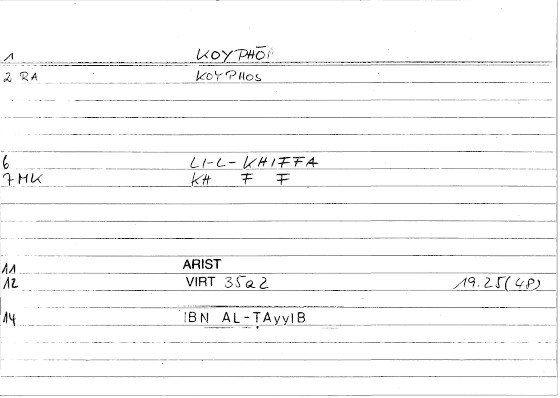 1 KOYPHŌI
2 RA KOYPHOS
6 LI-L-KHIFFA
7 MK KH F F
11 ARIST
12 VIRT 35a2 19.25(48)
14 IBN AL-ṬAyyIB